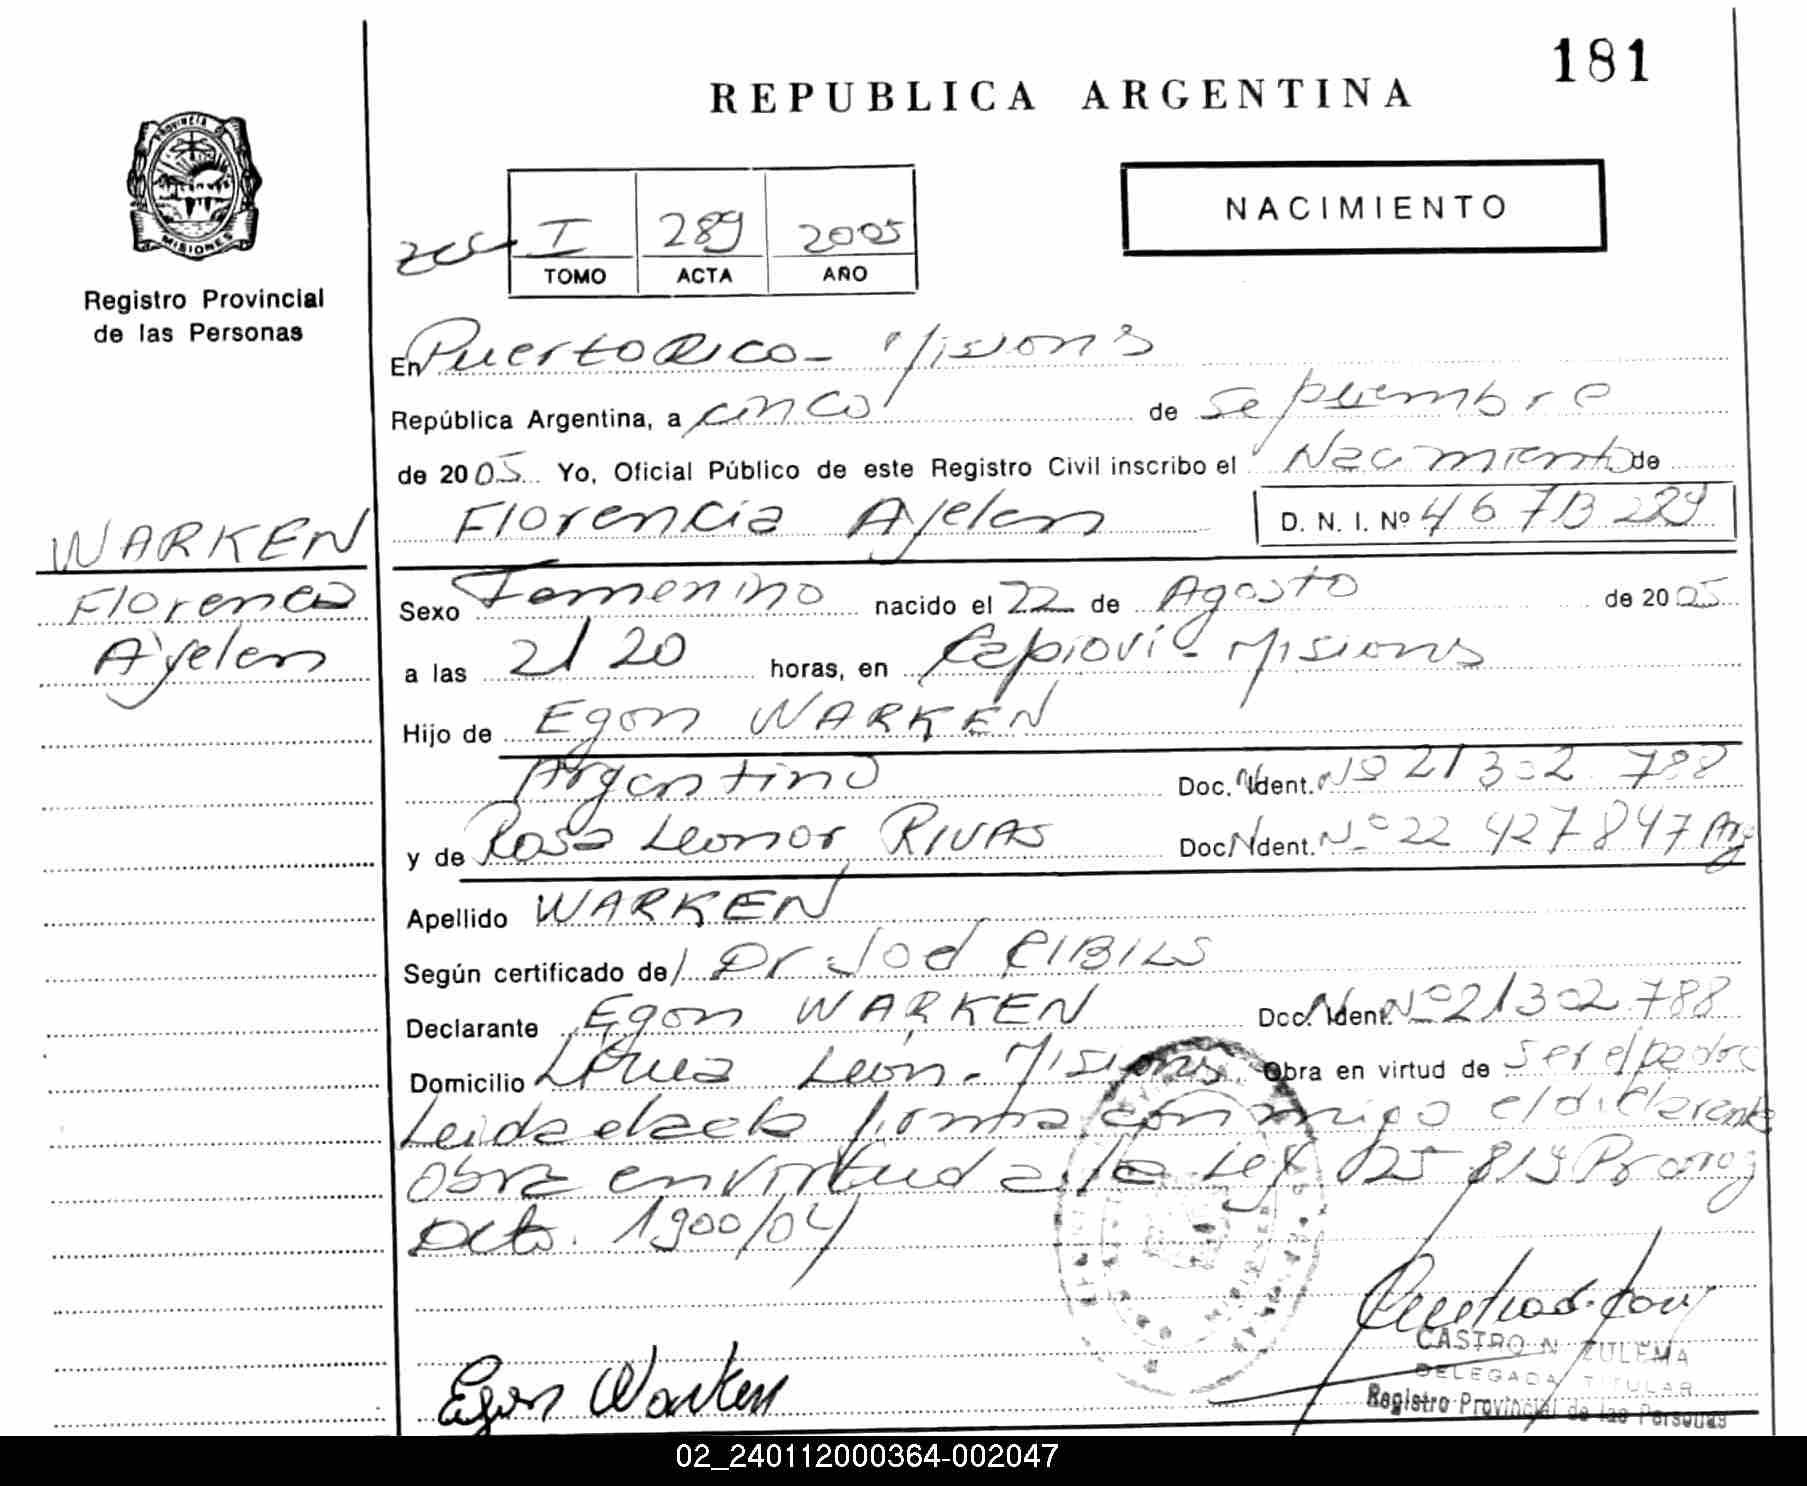 181
REPUBLICA ARGENTINA
PROVINCIA DE
MISIONES
Registro Provincial
de las Personas
NACIMIENTO
I 289 2005
TOMO ACTA AÑO
En Puerto Rico - Misiones
República Argentina, a cinco de Septiembre
de 2005 Yo, Oficial Público de este Registro Civil inscribo el Nacimiento de
Florencia Ayelen D. N. I. Nº
WARKEN
Florencia
Ayelen
Sexo Femenino nacido el 22 de Agosto de 2005
a las 21 20 horas, en Capioví - Misiones
Hijo de Egon WARKEN
Argentino Doc. Ident. Nº 21 302 788
y de Rosa Leonor RIVAS Doc Ident. Nº 22 427 847 Arg
Apellido WARKEN
Según certificado de Dr. RIBILS
Declarante Egon WARKEN Doc. Ident. Nº 21 302 788
Domicilio León - Misiones Obra en virtud de ser el padre
Leida el acta firma conmigo el declarante
Obra en virtud a la Ley 25 819
Dcto. 1900/04
Egon Warken
CASTRO N ZULEMA
DELEGADA TITULAR
Registro Provincial de las Personas
02_240112000364-002047